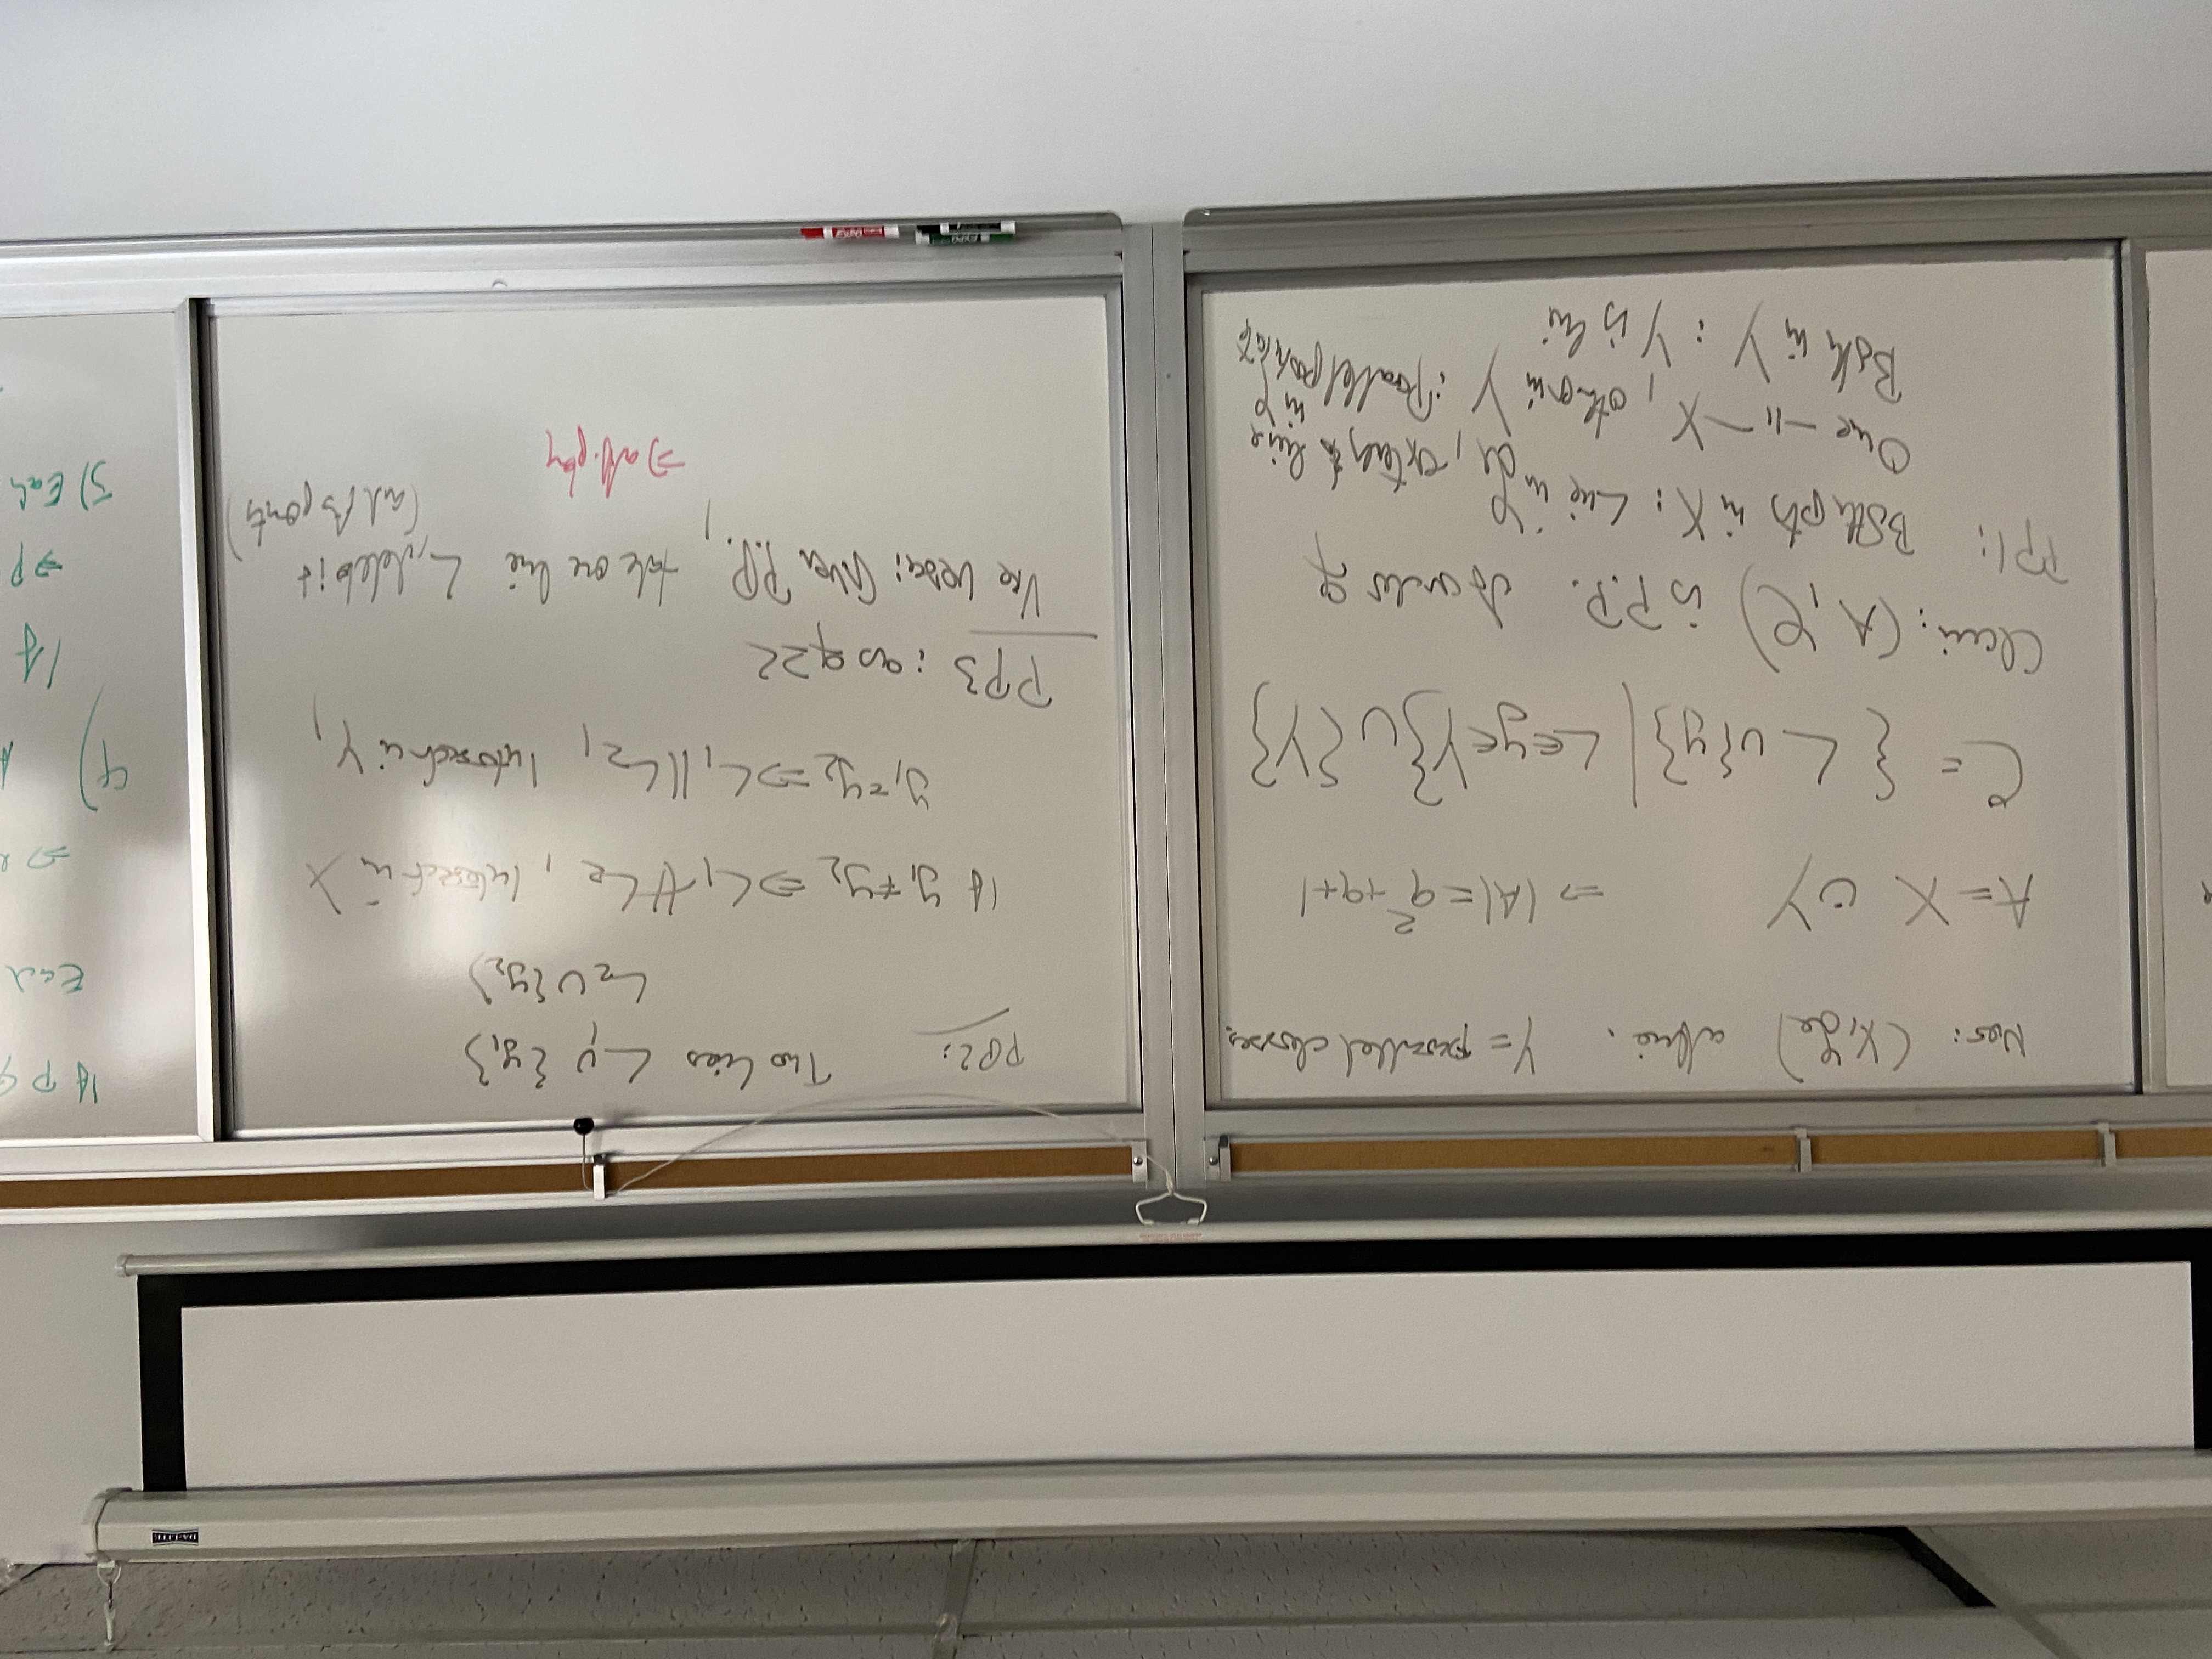 Now: (X, ℒ) affine. Y = parallel classes.
A = X ∪ Y ⇒ |A| = q² + q + 1
𝒞 = { L ∪ {y} | L ∈ y ∈ Y } ∪ {Y}
Claim: (A, 𝒞) is P.P. of order q
PP1: Both pts in X: Line in ℒ, extends to line in 𝒞
One -||- X, other in Y: Parallel postulate
Both in Y: Y is line
PP2: Two lines L₁ ∪ {y₁}
L₂ ∪ {y₂}
If y₁ ≠ y₂ ⇒ L₁ ∦ L₂, intersect in X
y₁ = y₂ ⇒ L₁ || L₂, intersect in Y,
PP3: as q ≥ 2
Vice versa: Given P.P., take one line L, delete it
(and its points)
⇒ aff. plane
If P
Each
⇒
4)
If
⇒ P
5) Each
DA-LITE